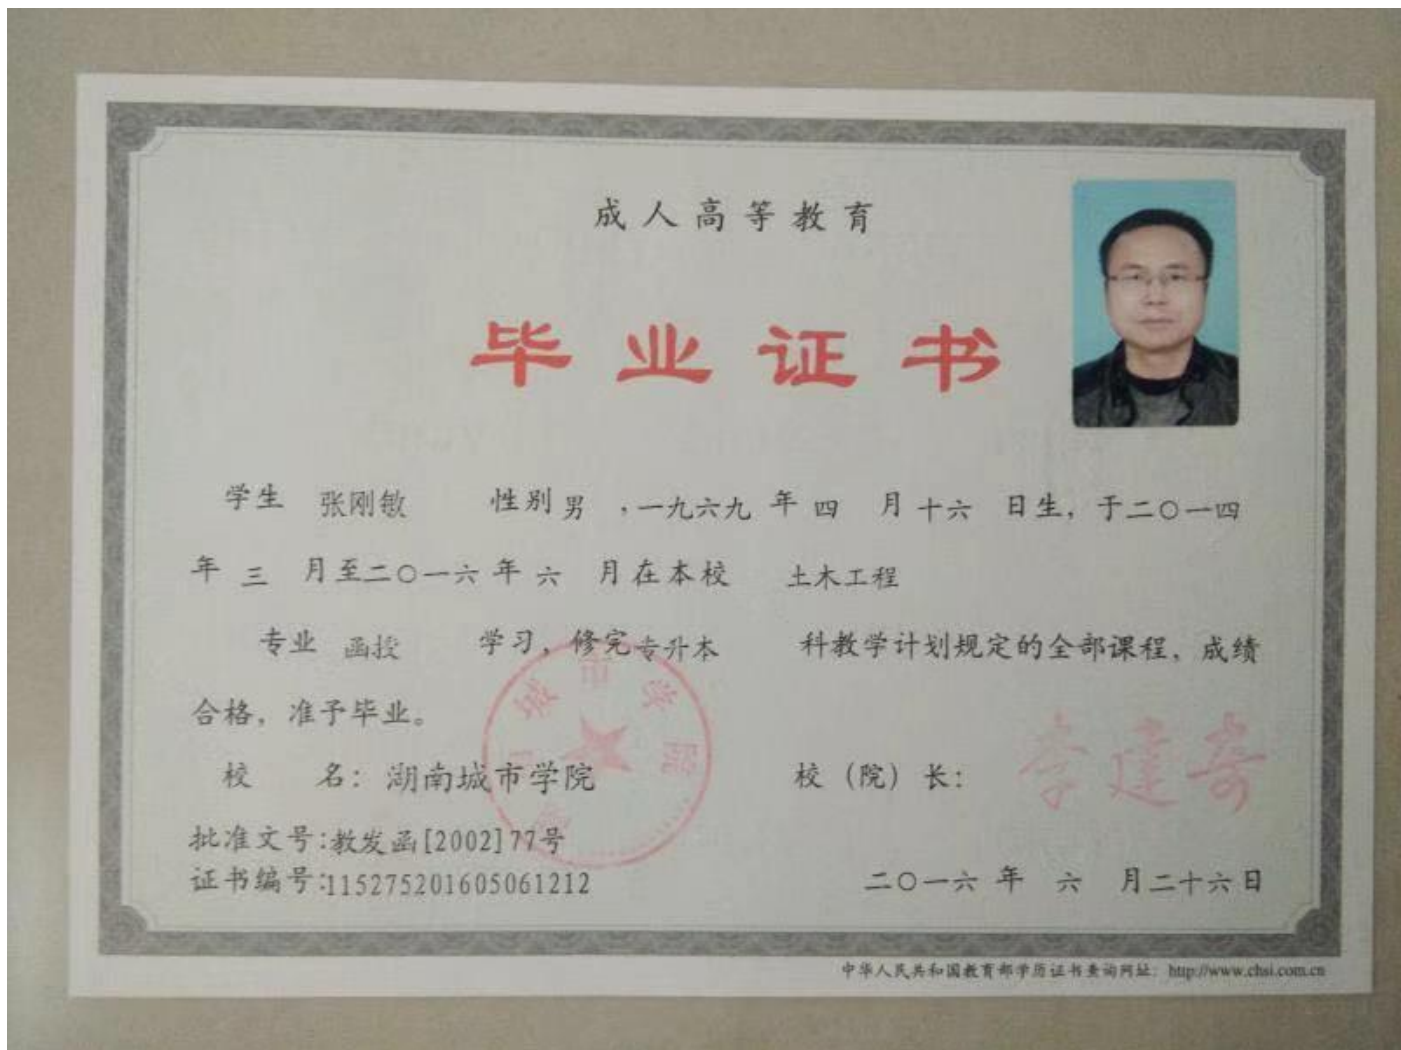 成人高等教育
毕业证书
学生 张刚敏 性别 男 ,一九六九 年 四 月 十六 日生, 于二〇一四
年 三 月至二〇一六 年 六 月在本校 土木工程
专业 函授 学习, 修完 专升本 科教学计划规定的全部课程, 成绩
合格, 准予毕业。
校 名: 湖南城市学院 校 (院) 长: 李建奇
批准文号:教发函[2002]77号
证书编号:115275201605061212 二〇一六 年 六 月二十六日
城市学院
中华人民共和国教育部学历证书查询网址: http://www.chsi.com.cn